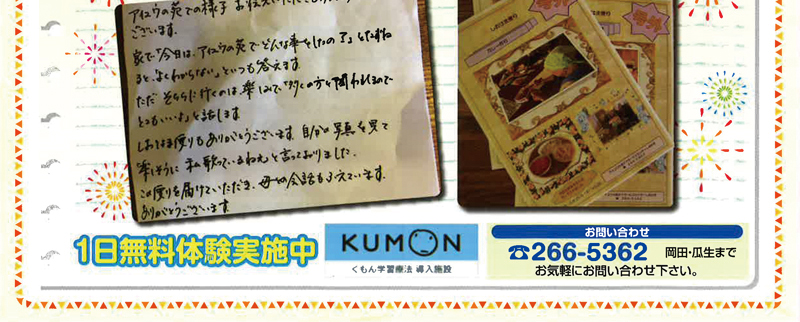 アイユウの苑での様子 お伝えいただき
ございます。
家で「今日は、アイユウの苑でどんな事をしたの?」とたずね
ると、"よくわからない"といつも答えます。
ただ そちらに行くのは 楽しみで、「多くの方と関われるので
とてもいいよ」と話します。
しおはま便りもありがとうございます。自分の写真を見て
楽しそうに 私歌っているわねぇと言っておりました。
この便りを届けていただき、母との会話もふえています。
ありがとうございます。
1日無料体験実施中
KUMON
くもん学習療法 導入施設
お問い合わせ
☎266-5362 岡田・瓜生まで
お気軽にお問い合わせ下さい。